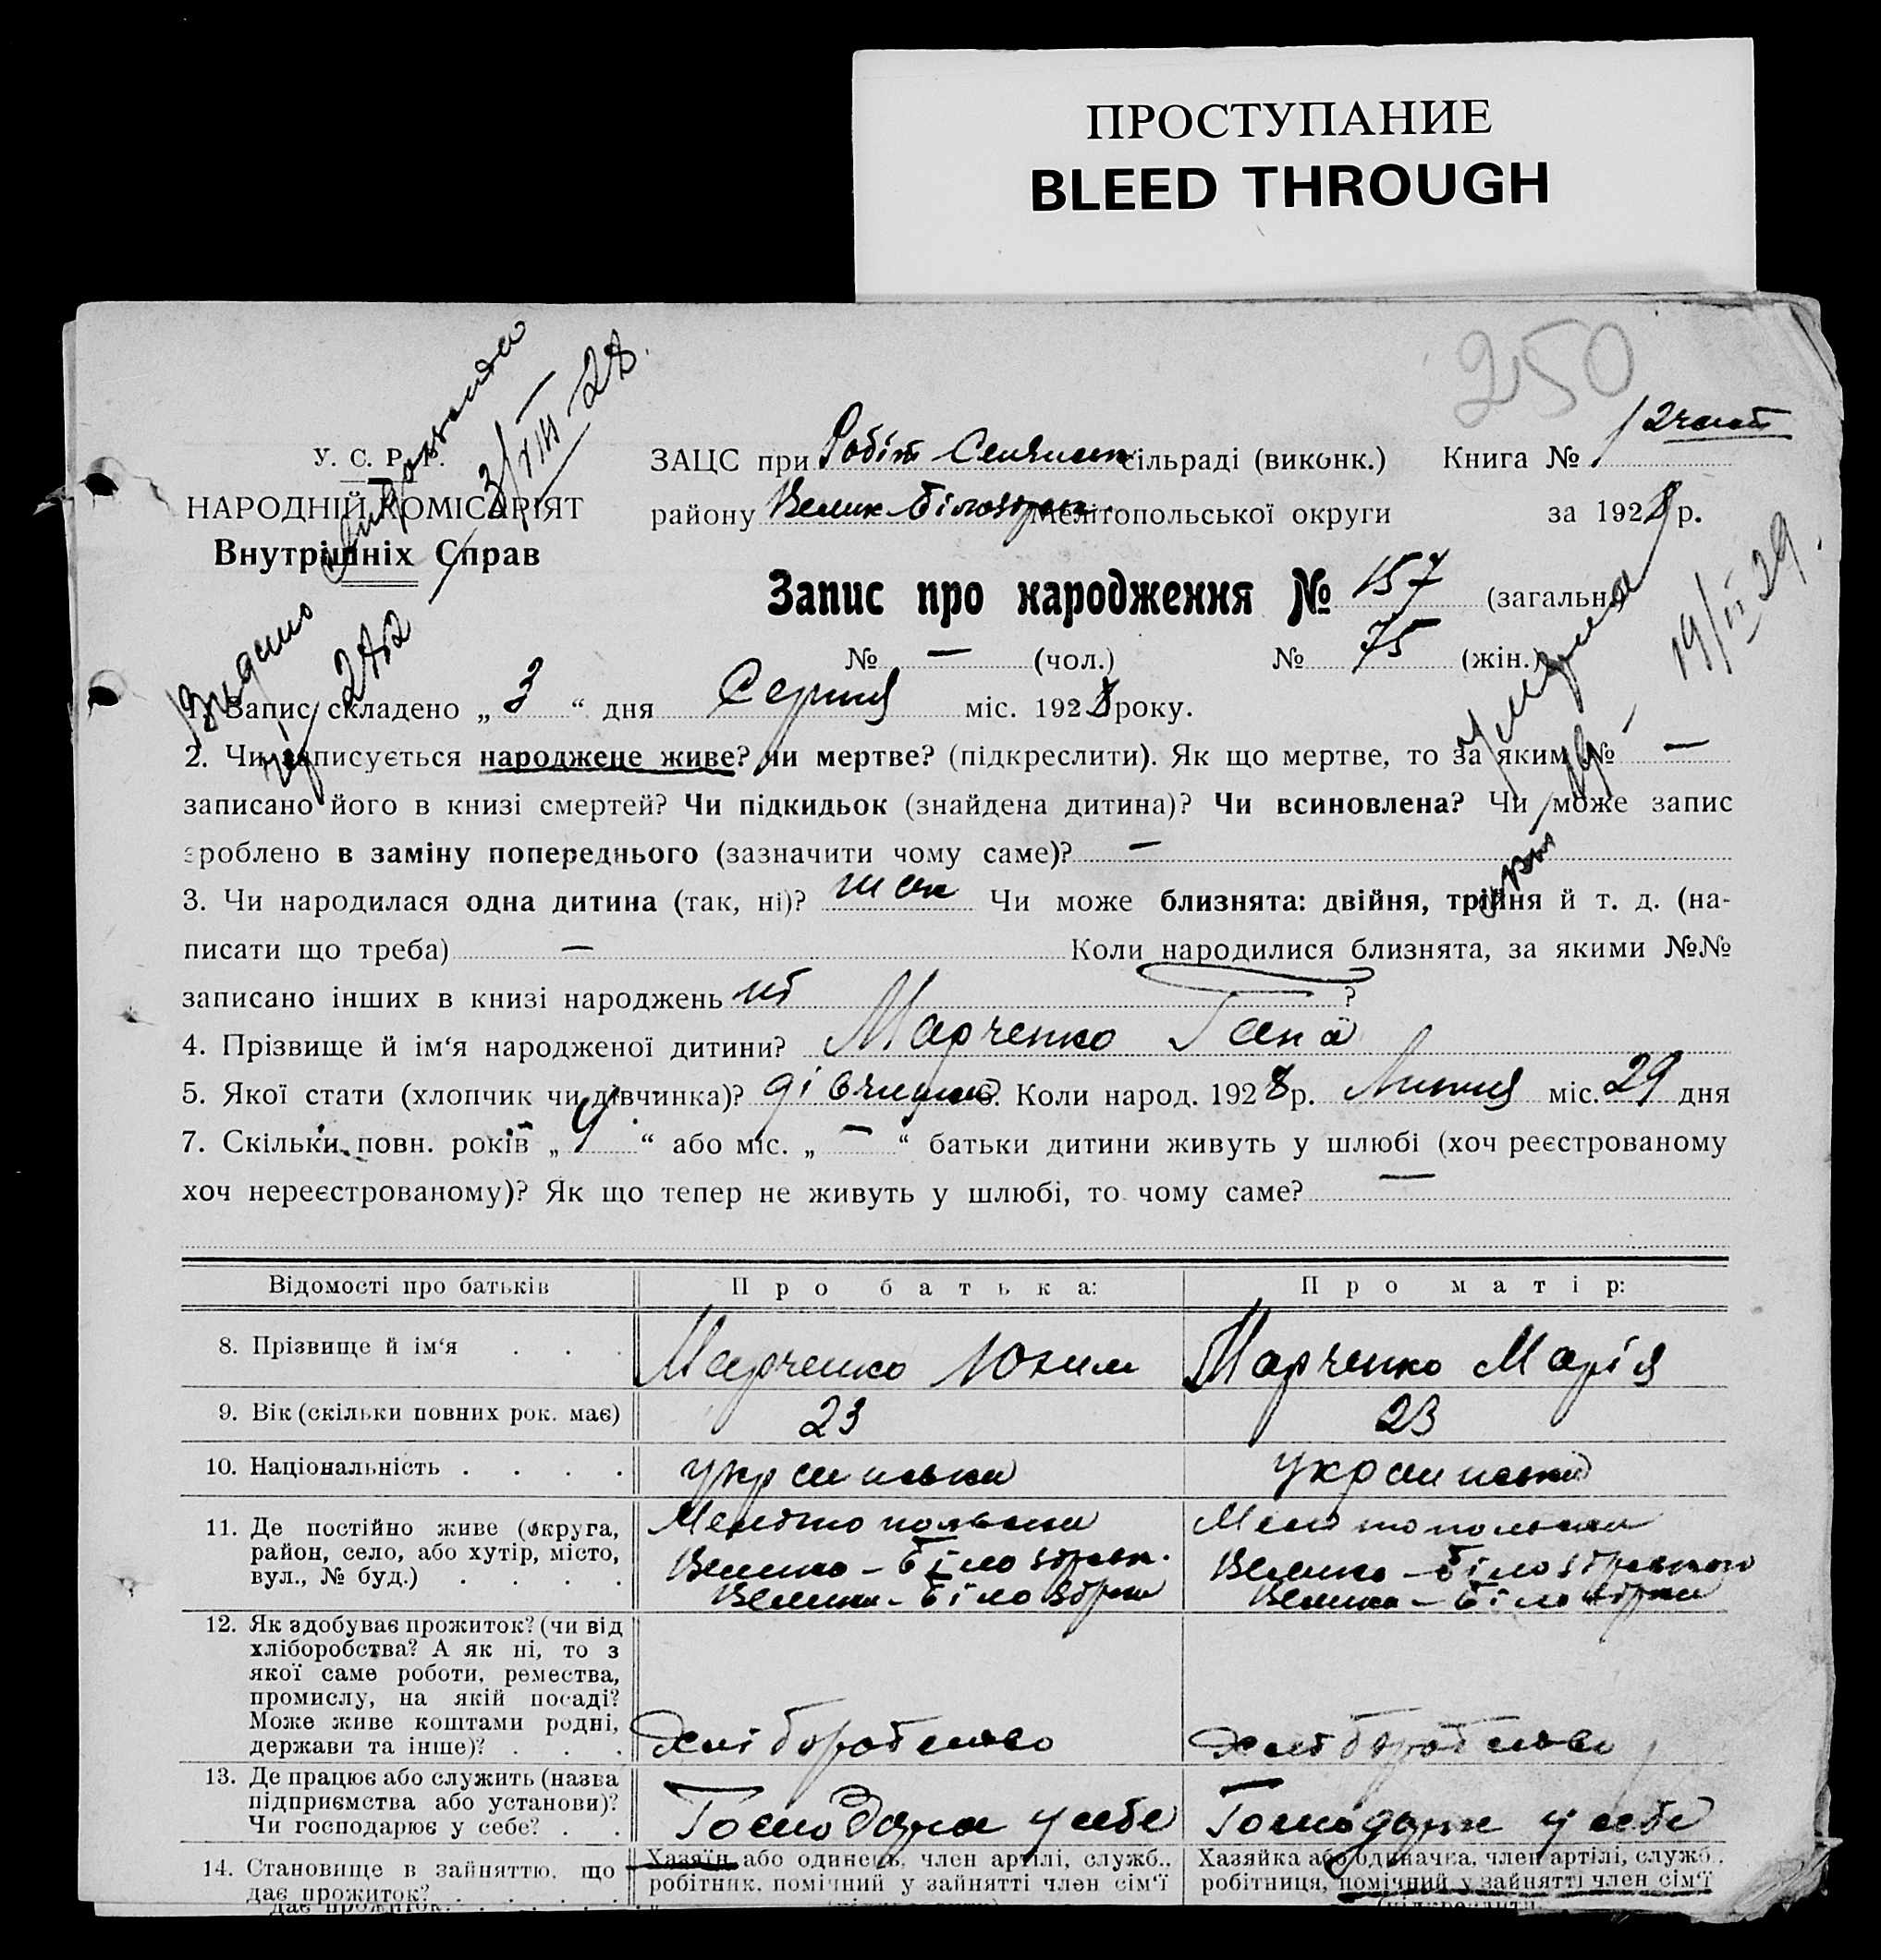 ПРОСТУПАНИЕ
BLEED THROUGH
250
Видано
3/VIII-28
У. С. Р. Р.
НАРОДНІЙ КОМІСАРІЯТ
Внутрішніх Справ
ЗАЦС при Робіт Селянськ сільраді (виконк.) Книга № 1
району Велик-Білозірськ. Мелітопольської округи за 1928 р.
Запис про народження № 157 (загальн.)
№ — (чол.) № 75 (жін.)
Умерла
19/II 29
1. Запис складено „ 3 “ дня Серпня міс. 1928 року.
2. Чи записується народжене живе? чи мертве? (підкреслити). Як що мертве, то за яким № —
записано його в книзі смертей? Чи підкидьок (знайдена дитина)? Чи всиновлена? Чи може запис
зроблено в заміну попереднього (зазначити чому саме)? —
3. Чи народилася одна дитина (так, ні)? так Чи може близнята: двійня, трійня й т. д. (на-
писати що треба) — Коли народилися близнята, за якими №№
записано інших в книзі народжень ?
4. Прізвище й ім‘я народженої дитини? Марченко Гана
5. Якої стати (хлопчик чи дівчинка)? дівчинка 6. Коли народ. 1928 р. Липня міс. 29 дня
7. Скільки повн. років „ 4 “ або міс. „ — “ батьки дитини живуть у шлюбі (хоч реєстрованому
хоч нереєстрованому)? Як що тепер не живуть у шлюбі, то чому саме? —
Відомості про батьків Про батька: Про матір:
8. Прізвище й ім‘я . . . Марченко Юхим Марченко Марія
9. Вік (скільки повних рок. має) 23 23
10. Національність . . . .
11. Де постійно живе (округа,
район, село, або хутір, місто,
вул., № буд.) . . . .
Велико-Білозірськ.
Велико-Білозірки
12. Як здобуває прожиток? (чи від
хліборобства? А як ні, то з
якої саме роботи, ремества,
промислу, на якій посаді?
Може живе коштами родні,
держави та інше)? . . . хліборобство хліборобство
13. Де працює або служить (назва
підприємства або установи)?
Чи господарює у себе? . . Господарка у себе Господарка у себе
14. Становище в зайняттю, що
дає прожиток? . . . .
Хазяїн або одинець, член артілі, служб.,
робітник, помічний у зайнятті член сім‘ї
Хазяйка або одиначка, член артілі, служб.,
робітниця, помічний у зайнятті член сім‘ї